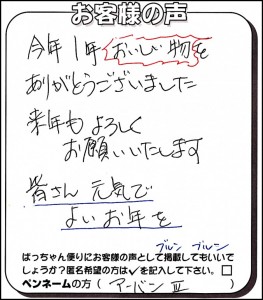 お客様の声
今年1年おいしい物を
ありがとうございました
来年もよろしく
お願いいたします
皆さん元気で
よいお年を
ブルン ブルン
ばっちゃん便りにお客様の声として掲載してもいいで
しょうか?匿名希望の方は✓を記入して下さい。□
ペンネームの方( アーバンⅢ )